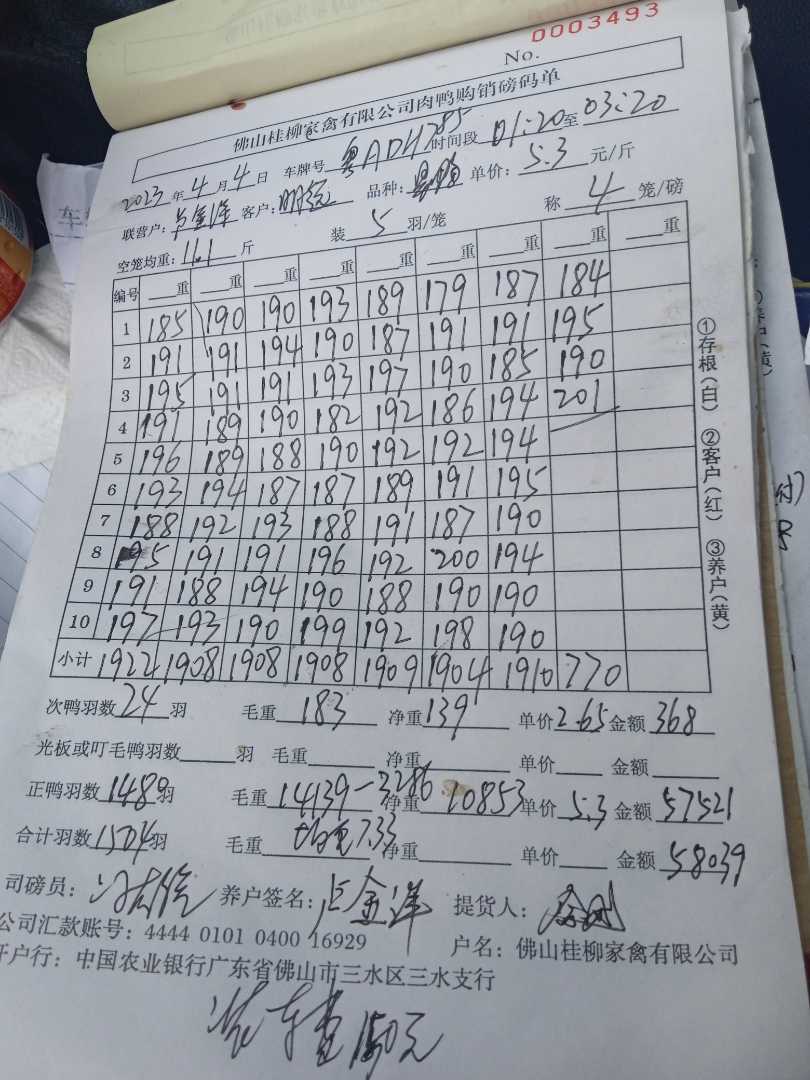 No.
0003493
佛山桂柳家禽有限公司肉鸭购销磅码单
2023年4月4日 车牌号 粤ADH785 时间段 01:20至03:20
联营户: 卢金洋 客户: 明 品种: 单价: 5.3 元/斤
空笼均重: 11.1 斤 装 5 羽/笼 称 4 笼/磅
编号 重 重 重 重 重 重 重 重 重
1 185 190 190 193 189 179 187 184
2 191 191 194 190 187 191 191 195
3 195 191 191 193 197 190 185 190
4 191 189 190 182 192 186 194 201
5 196 189 188 190 192 192 194
6 193 194 187 187 189 191 195
7 188 192 193 188 191 187 190
8 195 191 191 196 192 200 194
9 191 188 194 190 188 190 190
10 197 193 190 199 192 198 190
小计 1922 1908 1908 1908 1909 1904 1910 770
次鸭羽数 24 羽 毛重 183 净重 139 单价 2.65 金额 368
光板或叮毛鸭羽数 羽 毛重 净重 单价 金额
正鸭羽数 1480 羽 毛重 14139-3286 净重 10853 单价 5.3 金额 57521
合计羽数 1504 羽 毛重 均重7.33 净重 单价 金额 58039
司磅员: 养户签名: 卢金洋 提货人:
公司汇款账号: 4444 0101 0400 16929 户名: 佛山桂柳家禽有限公司
开户行: 中国农业银行广东省佛山市三水区三水支行
装车费 150元
①存根(白) ②客户(红) ③养户(黄)